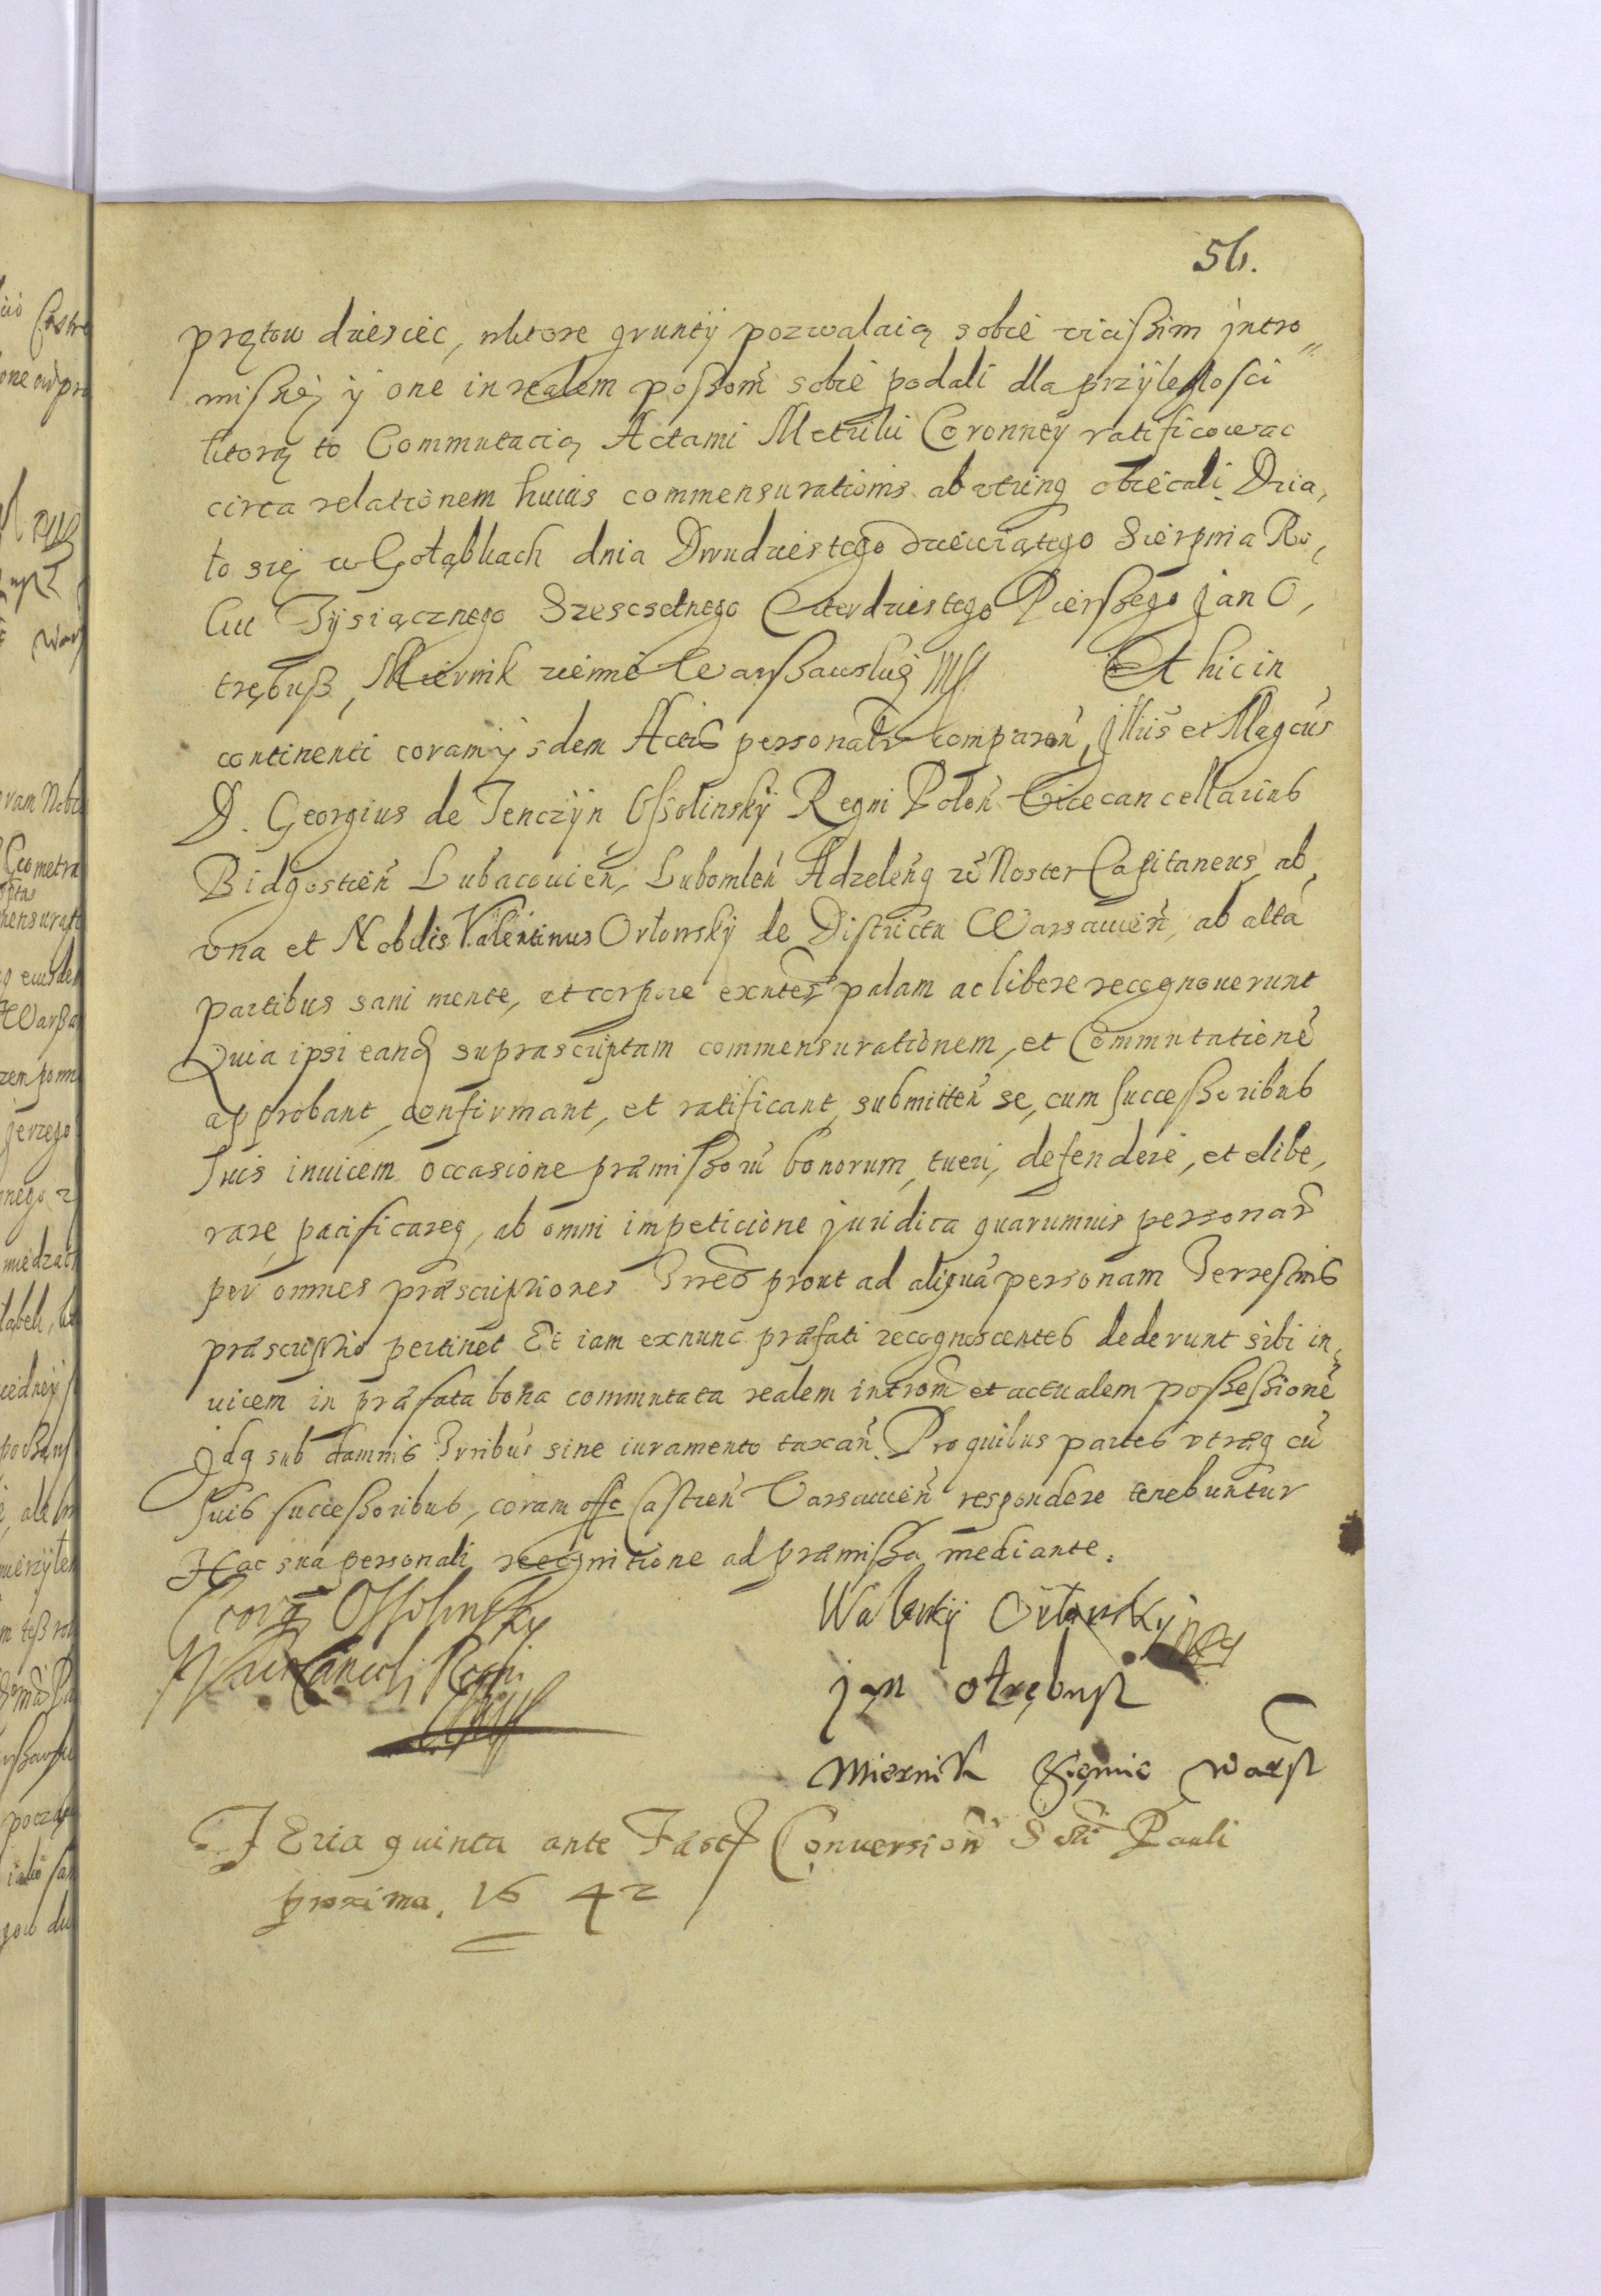 56.
prętow dziesięc, ktore grunty pozwalaią sobie vicissim intro„
missię y one in realem possom̃ sobie podali dla przyległosci
ktorą to Commutacią Actami Metriki Coronney ratificowac
circa relationem huius commensurationis ab utrinq obiecali. Dzia,
ło się w Gołąbkach dnia Dwudziestego dziewiątego Sierpnia Ro,
ku Tysiącznego Szescsetnego Czterdziestego Pierszego Jan O,
trębusz, Miernik ziemie Warszawskiej mp Et hic in
continenti coram ijsdem Actis personalr comparen̄ Illũs et Magcus
D. Georgius de Tenczyn Ossolinsky Regni Polon̄ Vicecancellarius
Bidgostien̄ Lubacovien̄, Lubomlen̄ Adzelen̄q Noster Capitaneus, ab
una et Nobilis Valentinus Orłowsky de Districtu Warsavien̄, ab alta
partibus sani mente, et corpore exntes palam ac libere recognouerunt
Quia ipsi eand suprascriptam commensurationem, et Commutationē
approbant, confirmant, et ratificant, submitten̄ se, cum successoribus
suis inuicem occasione præmissorũ bonorum, tueri, defendere, et elibe,
rare, pacificareq, ab omni impeticione juridica quarumuis personar̃
per omnes præscriptiones Trreŏ prout ad aliquã personam Terrestris
præscriptio pertinet Et iam exnunc præfati recognoscentes dederunt sibi in,
uicem in præfata bona commutata realem introm̃ et actualem possessionē
Idq sub damnis Trribus sine iuramento taxan̄. Pro quibus partes utræq cũ
suis successoribus, coram offo Castren̄ Varsavien̄ respondere tenebuntur
Hac sua personali recognitione ad præmissa mediante.
Georg Ossolinsky
Vicecancell. Regni
mp
Walenty Orłowsky mp
jan otrębusz
Miernik Ziemie warsz
FEria quinta ante Fest Conversion̄ Scti Pauli
proxima. 1642